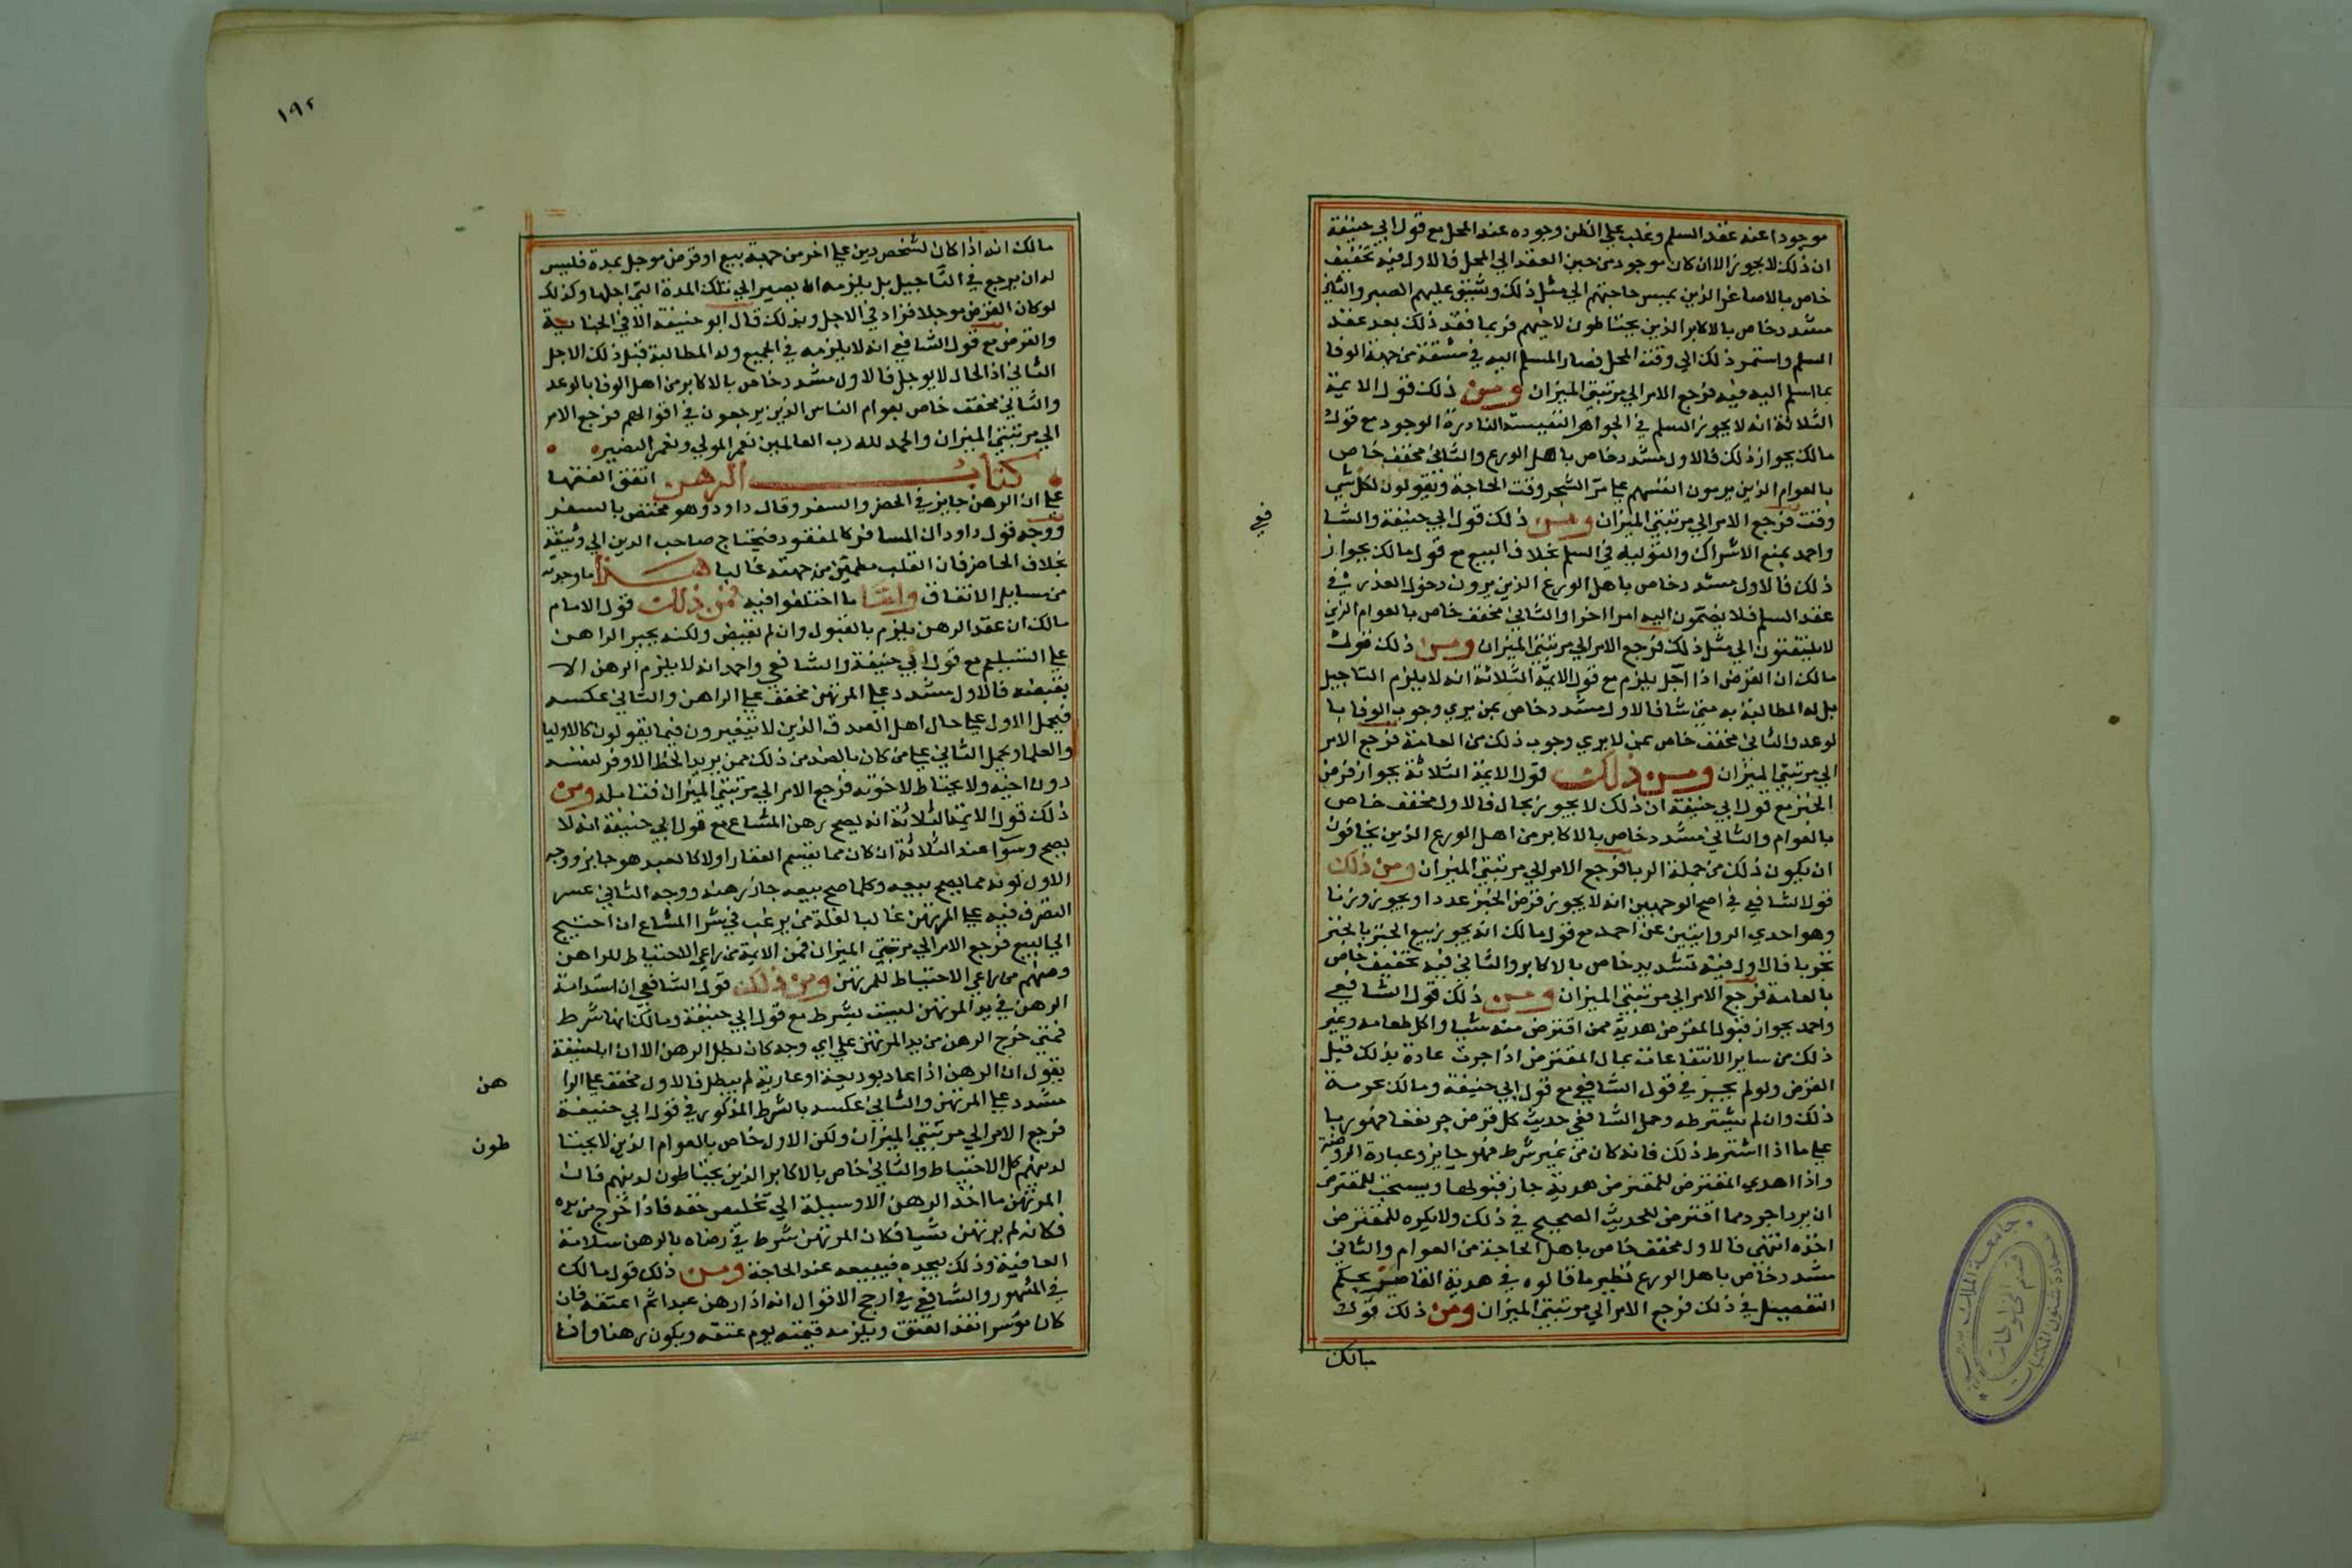 موجودا عند عقد السلم وغلب علي الظن وجوده عند المحل مع قول ابي حنيفة
ان ذلك لا يجوز الا ان كان موجود من حين العقد الي المحل فالاول فيه تخفيف
خاص بالاصاغر الذين تمس حاجتهم الي مثل ذلك ويشق عليهم الصبر والثاني
مشدد خاص بالاكابر الذين يحتاطون لاخيهم فربما فقد ذلك بعد عقد
السلم واستمر ذلك الي وقت المحل فصار المسلم اليه في مشقة من جهة الوفا
بما اسلم اليه فيه فرجع الامر الي مرتبتي الميزان ومن ذلك قول الايمة
الثلاثة انه لا يجوز السلم في الجواهر النفيسة النادرة الوجود مع قول
مالك بجواز ذلك فالاول مشدد خاص باهل الورع والثاني مخفف خاص
بالعوام الذين يرمون انفسهم علي مر الشجر وقت الحاجة ويقولون لكل شي
وقت فرجع الامر الي مرتبتي الميزان ومن ذلك قول ابي حنيفة والشا
في
واحمد بمنع الاشراك والتوليه في السلم بخلاف البيع مع قول مالك بجواز
ذلك فالاول مشدد خاص باهل الورع الذين يرون دخول العذر في
عقد السلم فلا يضمون اليه امرا اخرا والثاني مخفف خاص بالعوام الذين
لا يلتفتون الي مثل ذلك فرجع الامر الي مرتبتي الميزان ومن ذلك قول
مالك ان القرض اذا اجل يلزم مع قول الايمة الثلاثة انه لا يلزم التاجيل
بل له المطالبة به متي شا فالاول مشدد خاص بمن يري وجوب الوفا با
لوعد والثاني مخفف خاص بمن لا يري وجوب ذلك من العامة فرجع الامر
الي مرتبتي الميزان ومن ذلك قول الايمة الثلاثة بجواز قرض
الخبز مع قول ابي حنيفة ان ذلك لا يجوز بحال فالاول مخفف خاص
بالعوام والثاني مشدد خاص بالاكابر من اهل الورع الذين يخافون
ان يكون ذلك من جملة الربا فرجع الامر الي مرتبتي الميزان ومن ذلك
قول الشافعي في اصح الوجهين انه لا يجوز قرض الخبز عددا ويجوز وزنا
وهو احدي الروايتين عن احمد مع قول مالك انه يجوز بيع الخبز بالخبز
تحريا فالاول فيه تشديد خاص بالاكابر والثاني فيه تخفيف خاص
بالعامة فرجع الامر الي مرتبتي الميزان ومن ذلك قول الشافعي
واحمد بجواز قبول المقرض هدية ممن اقترض منه شيا واكل طعامه وغير
ذلك من ساير الانتفاعات بمال المقترض اذا جرت عادة بذلك قبل
القرض ولو لم يجز في قول الشافعي مع قول ابي حنيفة ومالك بحرمة
ذلك وان لم يشترطه وحمل الشافعي حديث كل قرض جر نفعا فهو ربا
علي ما اذا اشترط ذلك فانه كان من غير شرط فهو جايز وعبارة الروضة
واذا اهدي المقترض للمقرض هدية جاز قبولها ويستحب للمقترض
ان يرد اجود مما اقترض للحديث الصحيح في ذلك ولا يكره للمقرض
اخذه انتهي فالاول مخفف خاص باهل الحاجة من العوام والثاني
مشدد خاص باهل الورع نظير ما قالوه في هدية القاضي بحكم
التفصيل في ذلك فرجع الامر الي مرتبتي الميزان ومن ذلك قول
مالك
١٩٢
مالك انه اذا كان لشخص دين علي اخر من جهة بيع او قرض موجل بمدة فليس
له ان يرجع في التاجيل بل يلزمه ان يصير الي تلك المدة التي اجلها وكذلك
لو كان القرض موجلا فزاد في الاجل وبذلك قال ابو حنيفة الا في الجناية
والقرض مع قول الشافعي انه لا يلزمه في الجميع وله المطالبة قبل ذلك الاجل
الثاني اذ الحال لا يوجل فالاول مشدد خاص بالاكابر من اهل الوفا بالوعد
والثاني مخفف خاص بعوام الناس الذين يرجعون في اقوالهم فرجع الامر
الي مرتبتي الميزان والحمد لله رب العالمين نعم المولي ونعم النصير
كتاب الرهن اتفق الفقها
علي ان الرهن جايز في الحضر والسفر وقال داود وهو مختص بالسفر
ووجه قول داود ان المسافر كالمفقود فيحتاج صاحب الدين الي وثيقة
بخلاف الحاضر فان القلب مطمئن من جهته غالبا هذا ما وجدته
من مسايل الاتفاق واما ما اختلفوا فيه فمن ذلك قول الامام
مالك ان عقد الرهن يلزم بالقبول وان لم يقبض ولكنه يجبر الراهن
علي التسليم مع قول ابي حنيفة والشافعي واحمد انه لا يلزم الرهن الا
بقبضه فالاول مشدد علي المرتهن مخفف علي الراهن والثاني عكسه
فيحمل الاول علي حال اهل الصدق الذين لا يتغيرون فيما يقولون كالاوليا
والعلما ويحمل الثاني علي من كان بالضد من ذلك ممن يريد الحظ الاوفر لنفسه
دون اخيه ولا يحتاط لاخوته فرجع الامر الي مرتبتي الميزان فتامله ومن
ذلك قول الايمة الثلاثة انه يصح رهن المشاع مع قول ابي حنيفة انه لا
يصح وسوآ عند الثلاثة ان كان مما يقسم العقار او لا كالعبد هو جايز ووجه
الاول كونه مما يصح بيعه وكلما صح بيعه جاز رهنه ووجه الثاني عسر
التصرف فيه علي المرتهن غالبا لقلة من يرغب في شرا المشاع ان احتيج
الي البيع فرجع الامر الي مرتبتي الميزان فمن الايمة من راعي الاحتياط للراهن
ومنهم من راعي الاحتياط للمرتهن ومن ذلك قول الشافعي ان استدامة
الرهن في يد المرتهن ليست بشرط مع قول ابي حنيفة ومالك انها شرط
فمتي خرج الرهن من يد المرتهن علي اي وجه كان بطل الرهن الا ان ابا حنيفة
يقول ان الرهن اذا عاد بوديعة او عارية لم يبطل فالاول مخفف علي الرا
هن
مشدد علي المرتهن والثاني عكسه بالشرط المذكور في قول ابي حنيفة
فرجع الامر الي مرتبتي الميزان ولكن الاول خاص بالعوام الذين لا يحتا
طون
لدينهم كل الاحتياط والثاني خاص بالاكابر الذين يحتاطون لدينهم فان
المرتهن ما اخذ الرهن الا وسيلة الي تخليص حقه فاذا خرج من يده
فكانه لم يرتهن شيا فكان المرتهن شرط في رضاه بالرهن سلامة
العاقبة وذلك بيده فيبيعه عند الحاجة ومن ذلك قول مالك
في المشهور والشافعي في ارجح الاقوال انه اذا رهن عبدا ثم اعتقه فان
كان موسرا نفذ العتق ويلزمه قيمته يوم عتقه ويكون رهنا وان